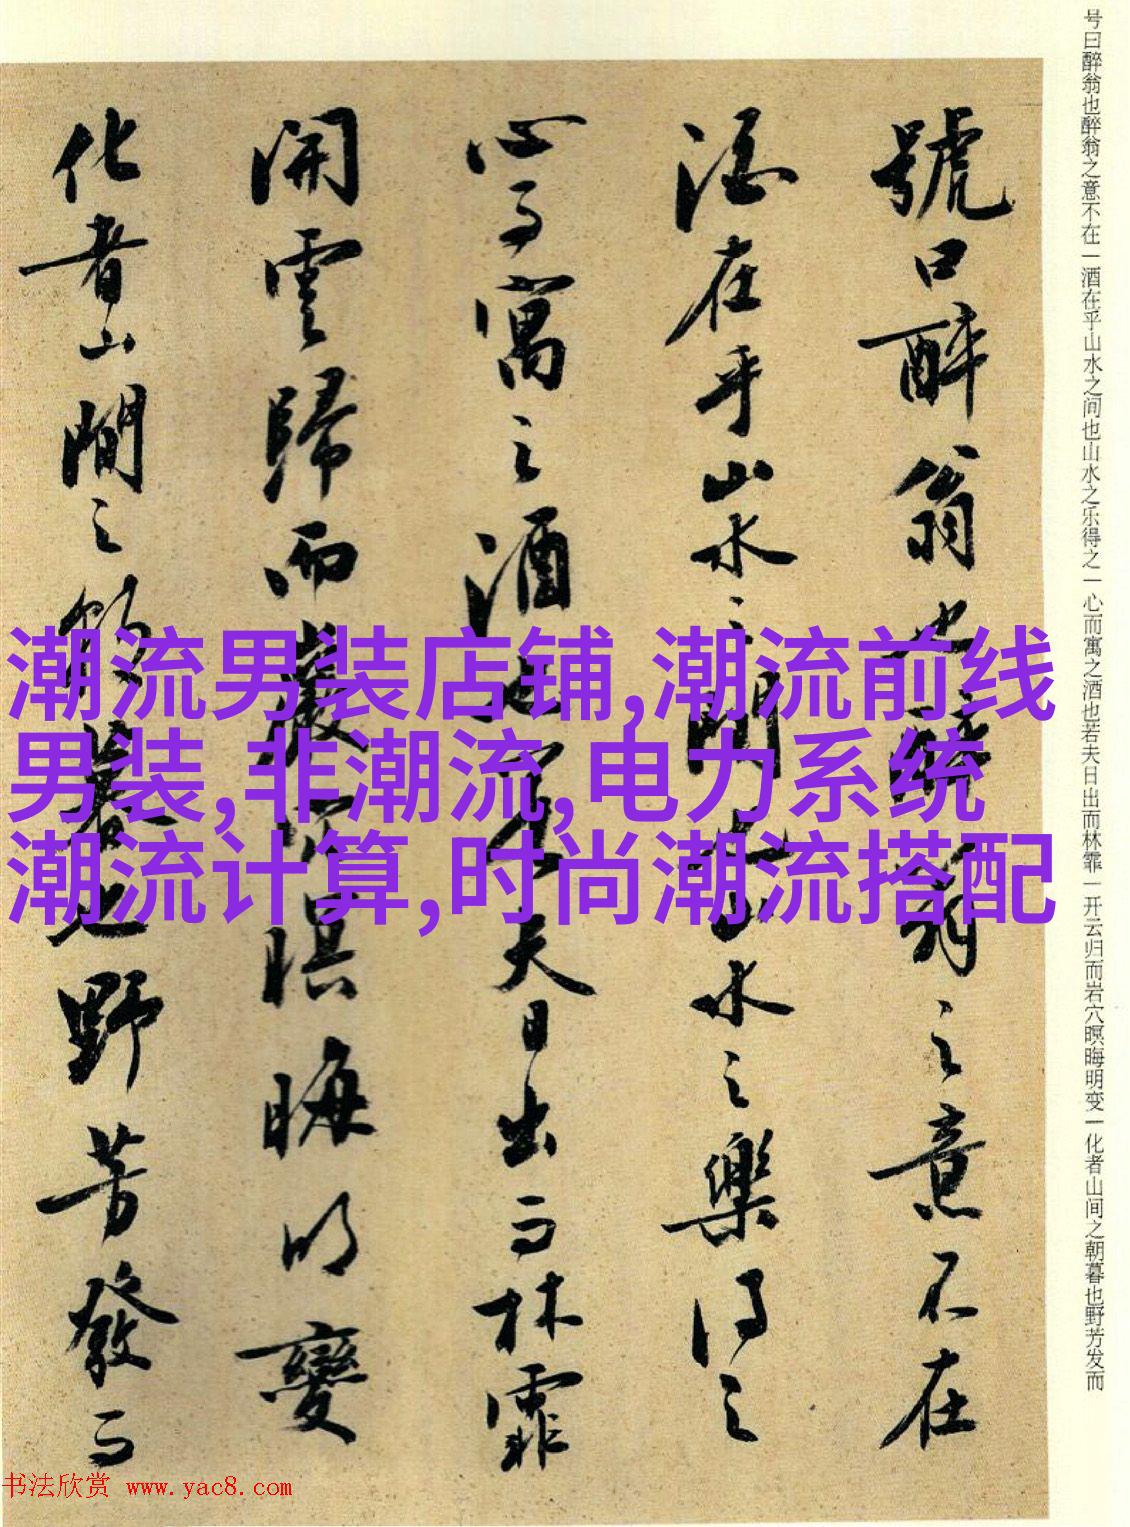 号曰醉翁也醉翁之意不在一酒在乎山水之间也山水之乐得之一心而寓之酒也若夫日出而林霏一开云归而岩穴暝晦明变一化者山间之朝暮也野芳发而
號曰醉翁也醉翁之意不在
酒在乎山水之間也山水之樂得之
心而寓之酒也若夫日出而林霏
開雲歸而巖穴暝晦明變
化者山間之朝暮也野芳發而
潮流男装店铺,潮流前线
男装,非潮流,电力系统
潮流计算,时尚潮流搭配
书法欣赏 www.yac8.com